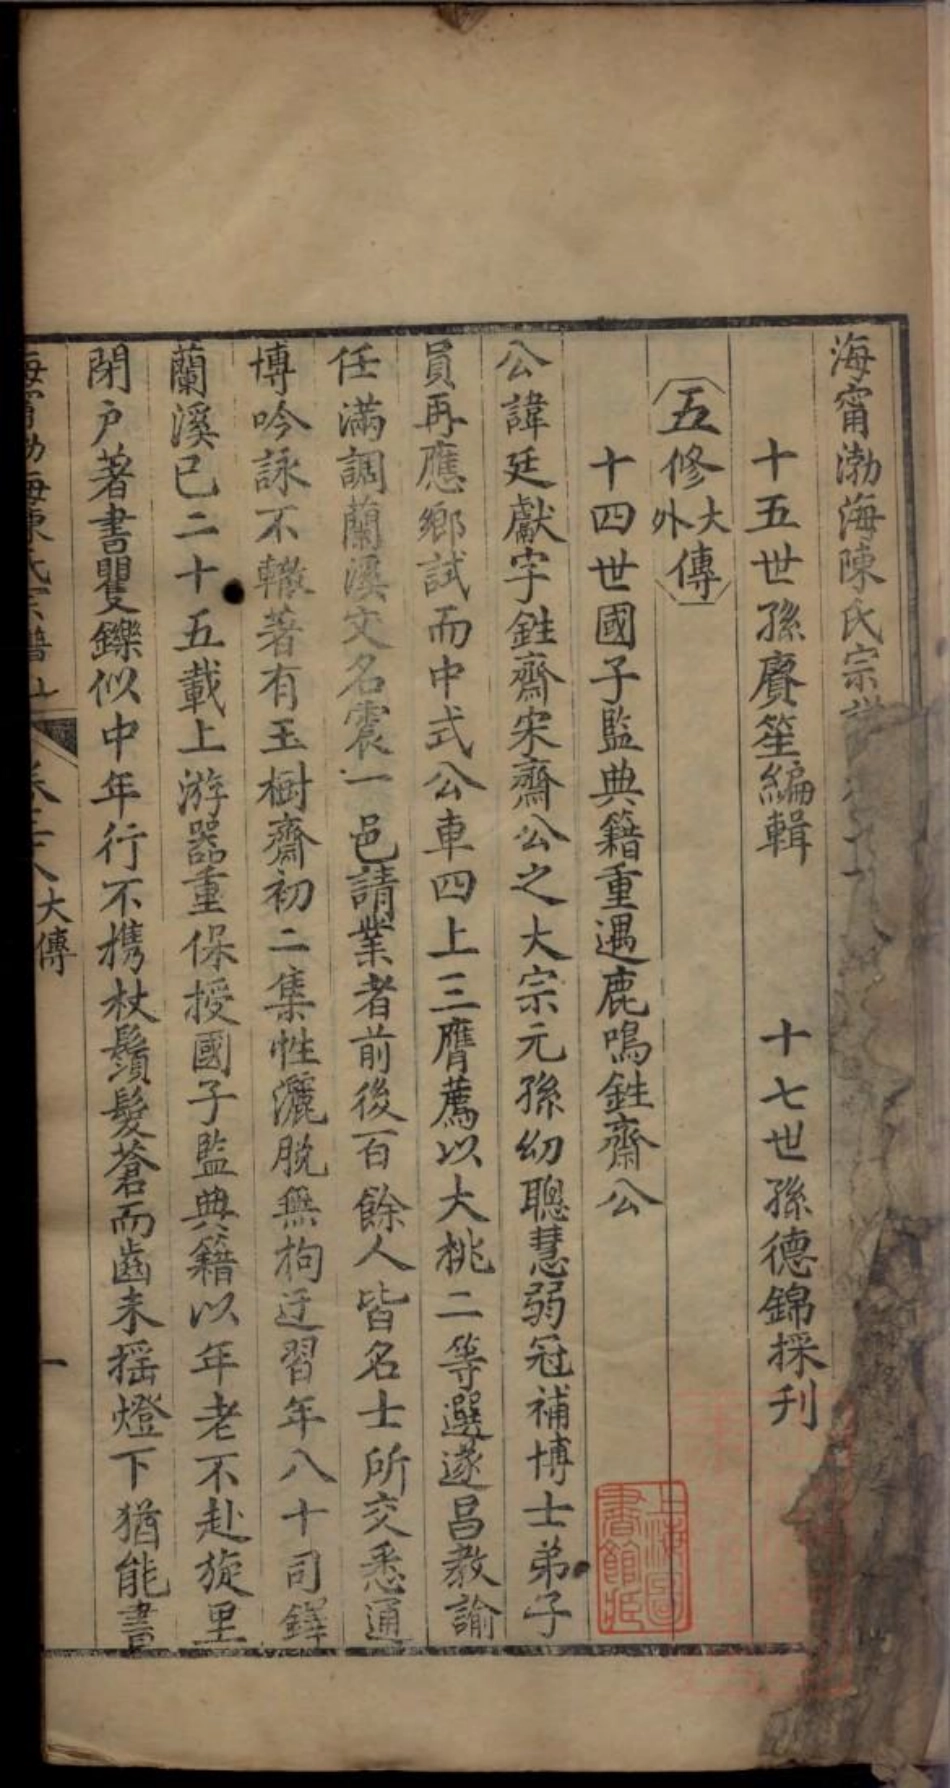 海甯渤海陳氏宗譜
十五世孫賡笙編輯 十七世孫德錦採刋
五修大外傳
十四世國子監典籍重遇鹿鳴鉎齋公
公諱廷獻字鉎齋宋齋公之大宗元孫幼聰慧弱冠補博士弟子
員再應鄉試而中式公車四上三膺薦以大桃二等選遂昌教諭
任滿調蘭溪文名震一邑請業者前後百餘人皆名士所交悉通
博吟詠不輟著有玉樹齋初二集性灑脫無拘迂習年八十司鐸
蘭溪已二十五載上游器重保授國子監典籍以年老不赴旋里
閉户著書矍鑠似中年行不携杖鬚髮蒼而齒未揺燈下猶能書
海甯渤海陳氏宗譜 卷二十八 大傳 一
上海圖書館藏